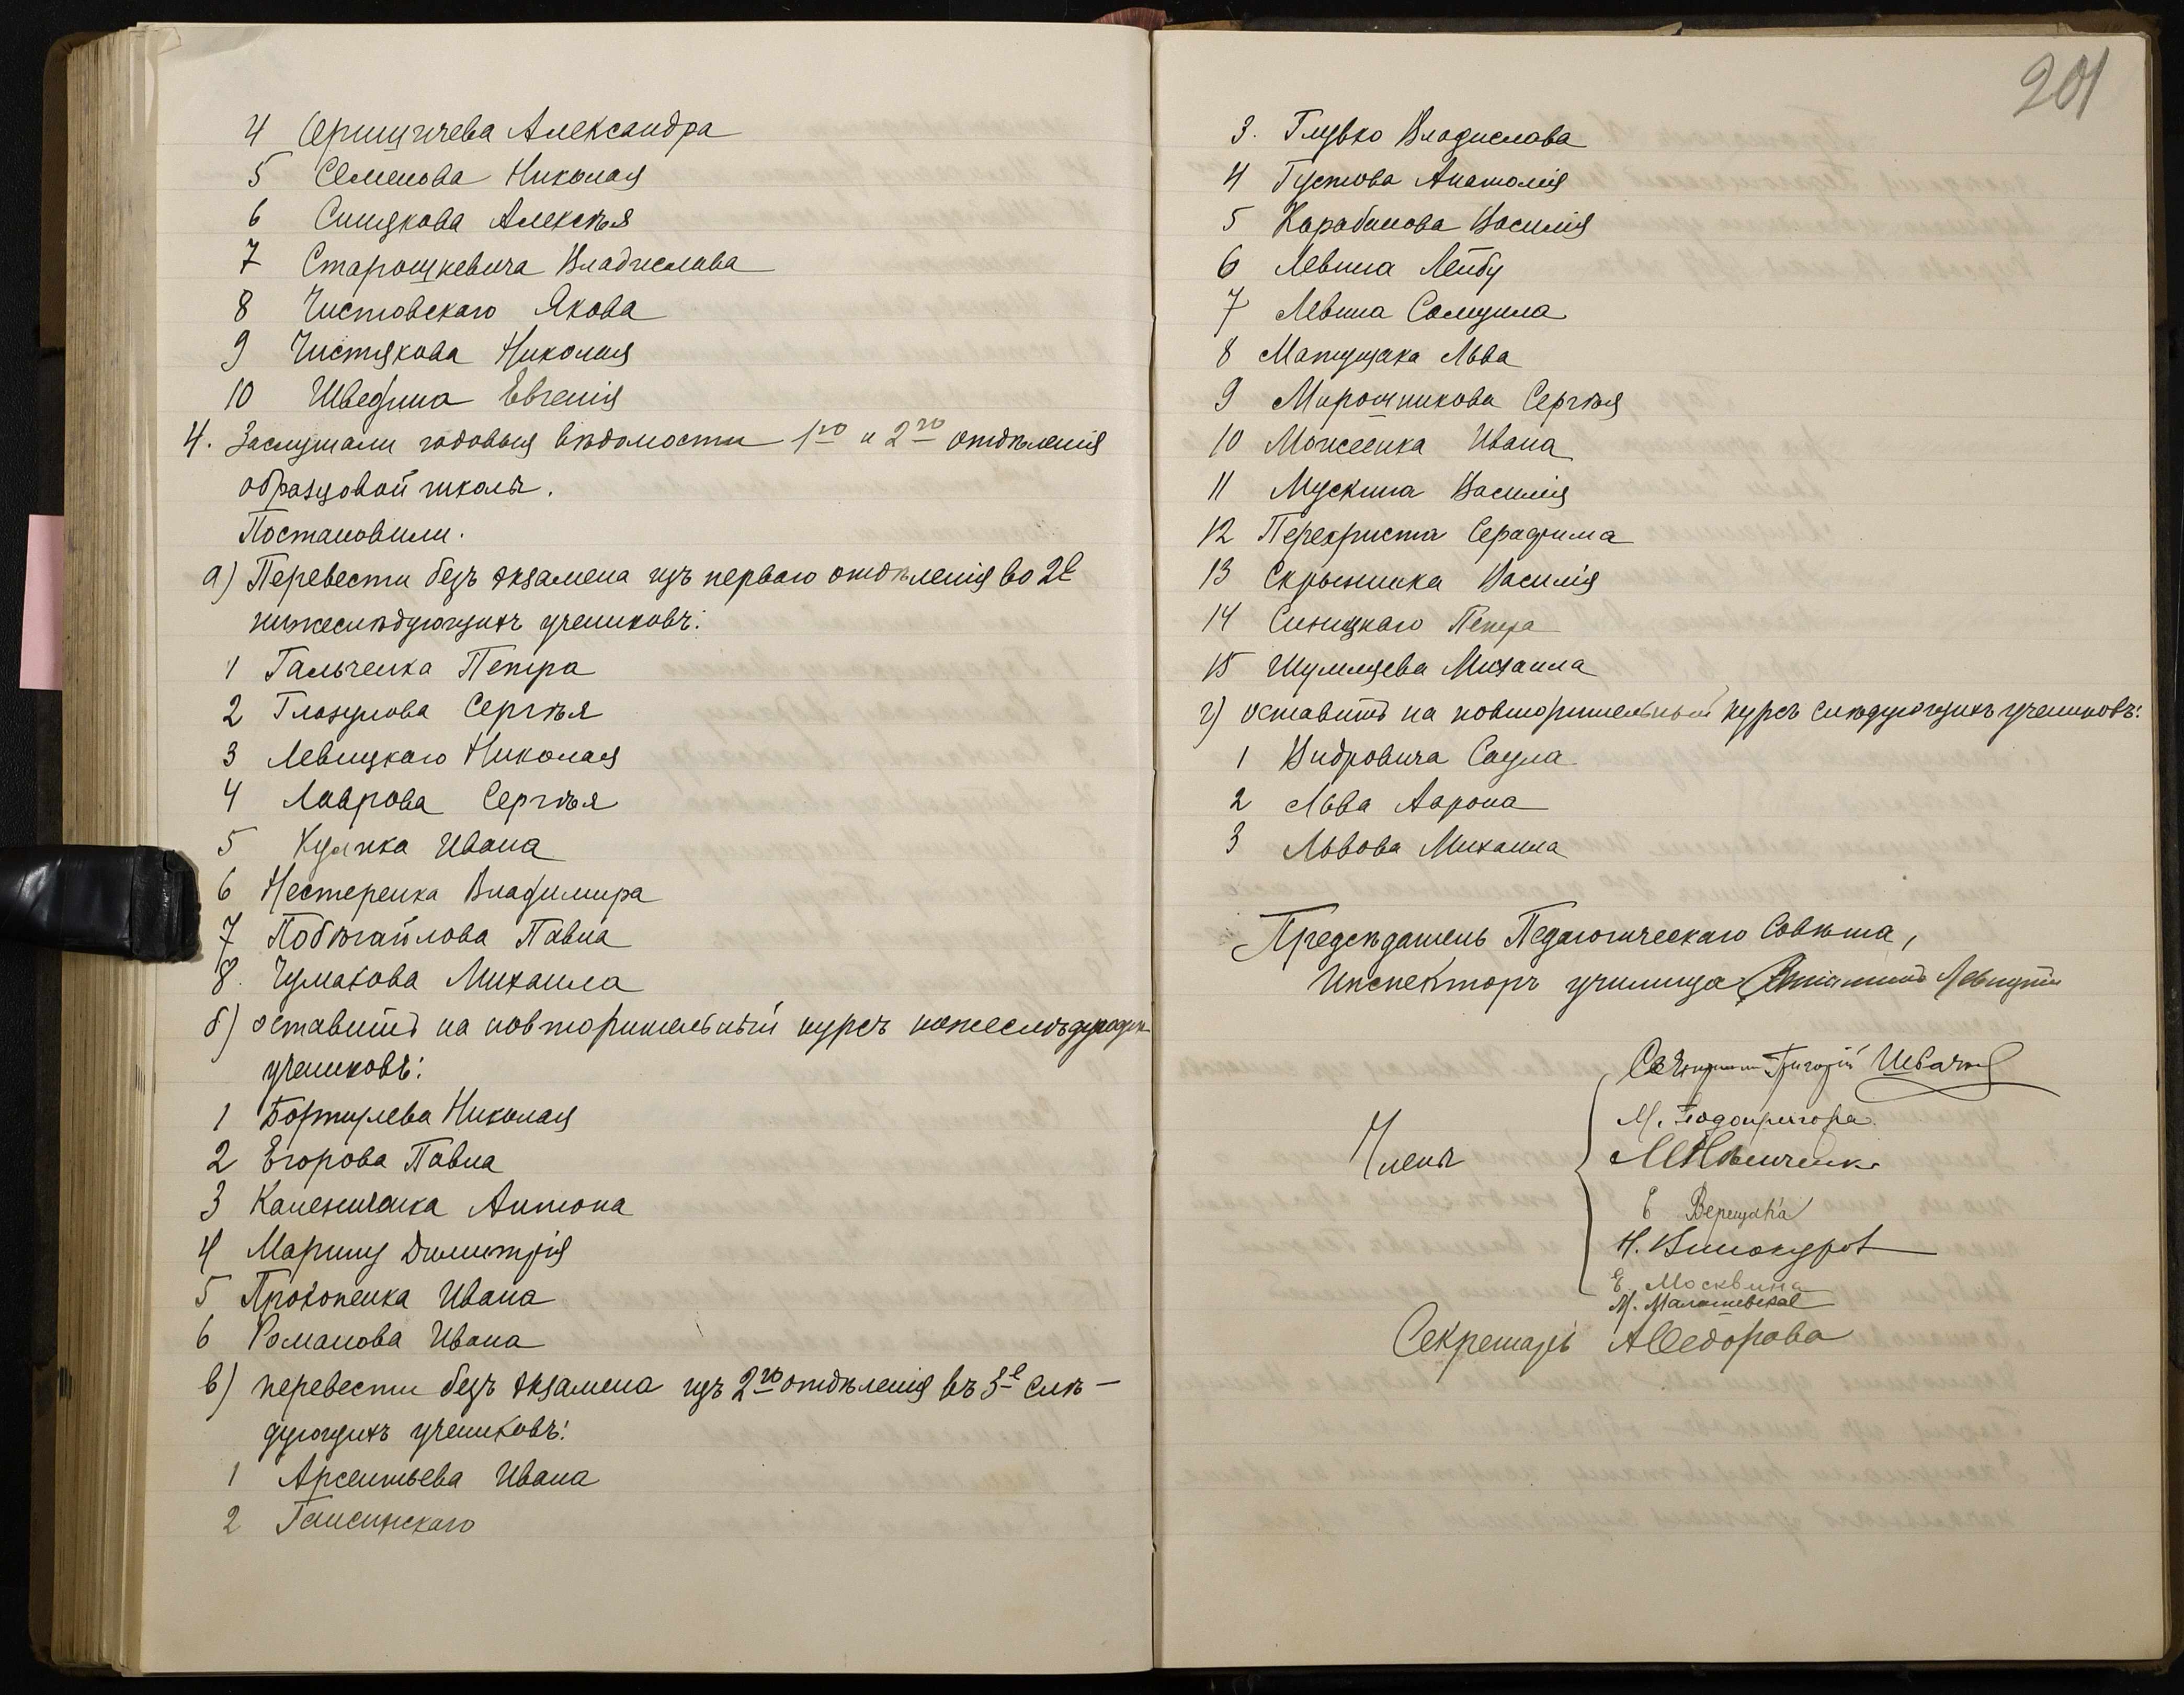 4 Сершичева Александра
5 Семенова Николая
6 Синякова Алексѣя
7 Старошкевича Владислава
8 Чистовскаго Якова
9 Чистякова Николая
10 Шведина Евгенія
4. Заслушали годовыя вѣдомости 1го и 2го отдѣленія
образцовой школы.
Постановили.
а) Перевести безъ экзамена изъ перваго отдѣленія во 2е
нижеслѣдующихъ учениковъ:
1 Гальченка Петра
2 Глазунова Сергѣя
3 Левицкаго Николая
4 Лаврова Сергѣя
5 Ивана
6 Нестеренка Владимира
7 Побѣгайлова Павла
8. Чумакова Михаила
б) оставить на повторительный курсъ нижеслѣдующ.
учениковъ:
1 Бортилева Николая
2 Егорова Павла
3 Каленичанка Антона
4 Марину Димитрія
5 Прокопенка Ивана
6 Романова Ивана
в) перевести безъ экзамена изъ 2го отдѣленія въ 3-е слѣ-
дующихъ учениковъ:
1 Арсентьева Ивана
2 Гансинскаго
201
3. Глувко Владислава
4 Густова Анатолія
5 Карабанова Василія
6 Левина Лейбу
7 Левина Самуила
8 Матущака Льва
9 Мирошникова Сергѣя
10 Моисеенка Ивана
11 Мускина Василія
12 Перехриста Серафима
13 Скрынника Василія
14 Синицкаго Петра
15 Шумляева Михаила
г) оставить на повторительный курсъ слѣдующихъ учениковъ:
1 Видровича Саула
2 Льва Аарона
3 Львова Михаила
Предсѣдатель Педагогическаго Совѣта,
Инспекторъ училища
Григорій
Члены
М. Подопригора
Е Верещака
Н. Винокуров
Е. Москвина
М. Малашевская
Секретарь А Федорова